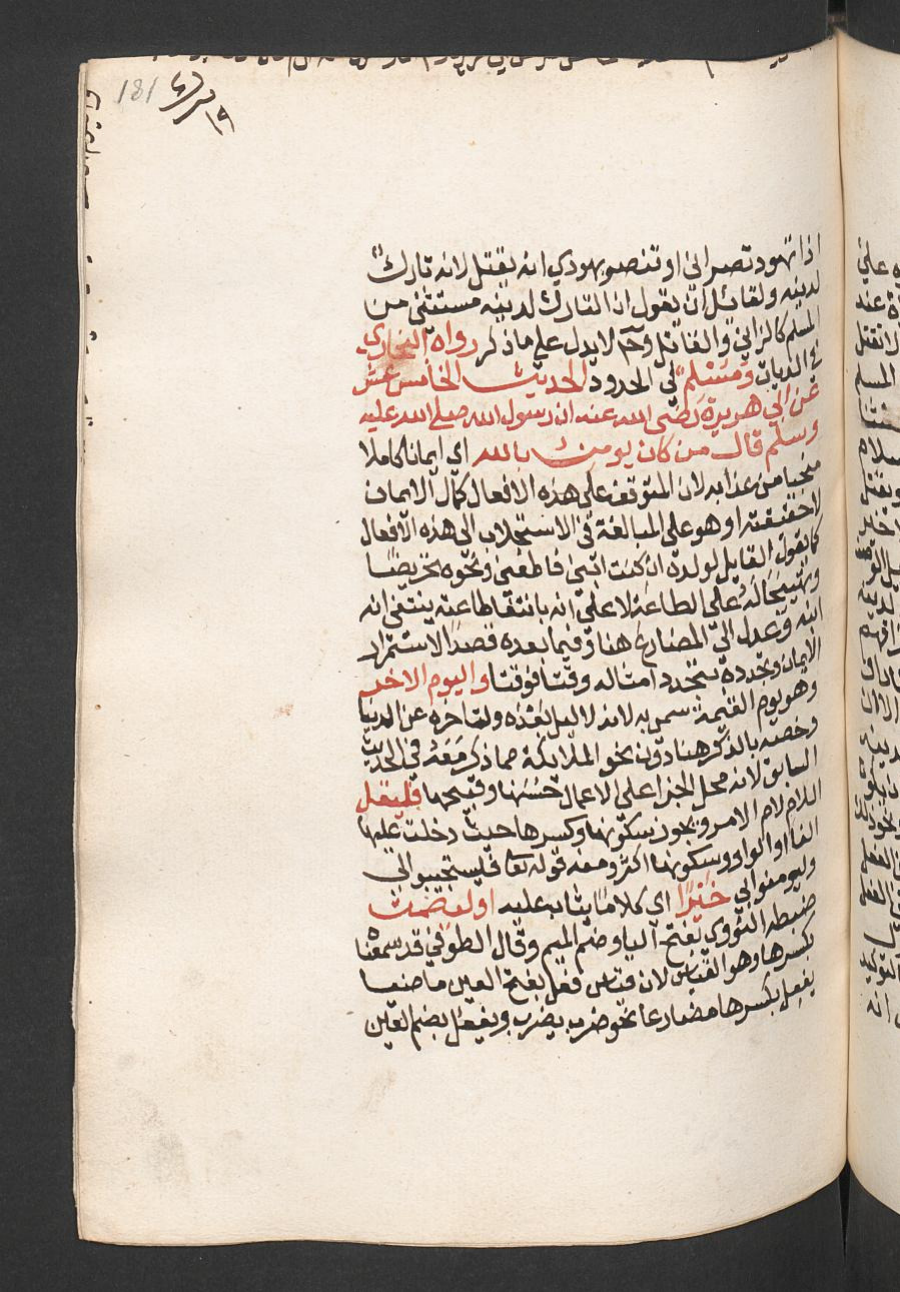 181
اذا تهود نصراني او تنصر يهودي انه يقتل لانه تارك
لدينه ولقائل ان يقول اذا التارك لدينه مستثنى من
المسلم كالزاني والقاتل وح لا يدل على ما ذكر رواه البخاري
في الديات ومسلم في الحدود الحديث الخامس عشر
عن ابي هريرة رضى الله عنه ان رسول الله صلى الله عليه
وسلم قال من كان يومن بالله اي ايمانا كاملا
منجيا من عذابه لان المتوقف على هذه الافعال كمال الايمان
لا حقيقته او هو على المبالغة في الاستجلاب الى هذه الافعال
كما يقول القايل لولده ان كنت ابني فاطعني ونحوه تحريضا
وتهييجا له على الطاعة لا على انه بانتفا طاعته ينتفي انه
ابنه وعدل الى المضارع هنا وفيما بعده قصدا لاستمرار
الايمان وتجدده بتجدد امثاله وقتا فوقتا واليوم الاخر
وهو يوم القيمة سمي به لانه لا ليل بعده ولتاخره عن الدنيا
وخصه بالذكر هنا دون نحو الملايكة مما ذكر معه في الحديث
السابق لانه محل الجزا على الاعمال حسنها وقبيحها فليقل
اللام لام الامر ويجوز سكونها وكسرها حيث دخلت عليها
الفا او الواو وسكونها اكثر ومنه قوله تعا فليستجيبوا لي
وليومنوا بي خيرا اي كلاما يثاب عليه او ليصمت
ضبطه النووي بفتح اليا وضم الميم وقال الطوفي قد سمعنا
بكسرها وهو القياس لان قياس فعل بفتح العين ماضيا
يفعل بكسرها مضارعا نحو ضرب يضرب ويفعل بضم العين